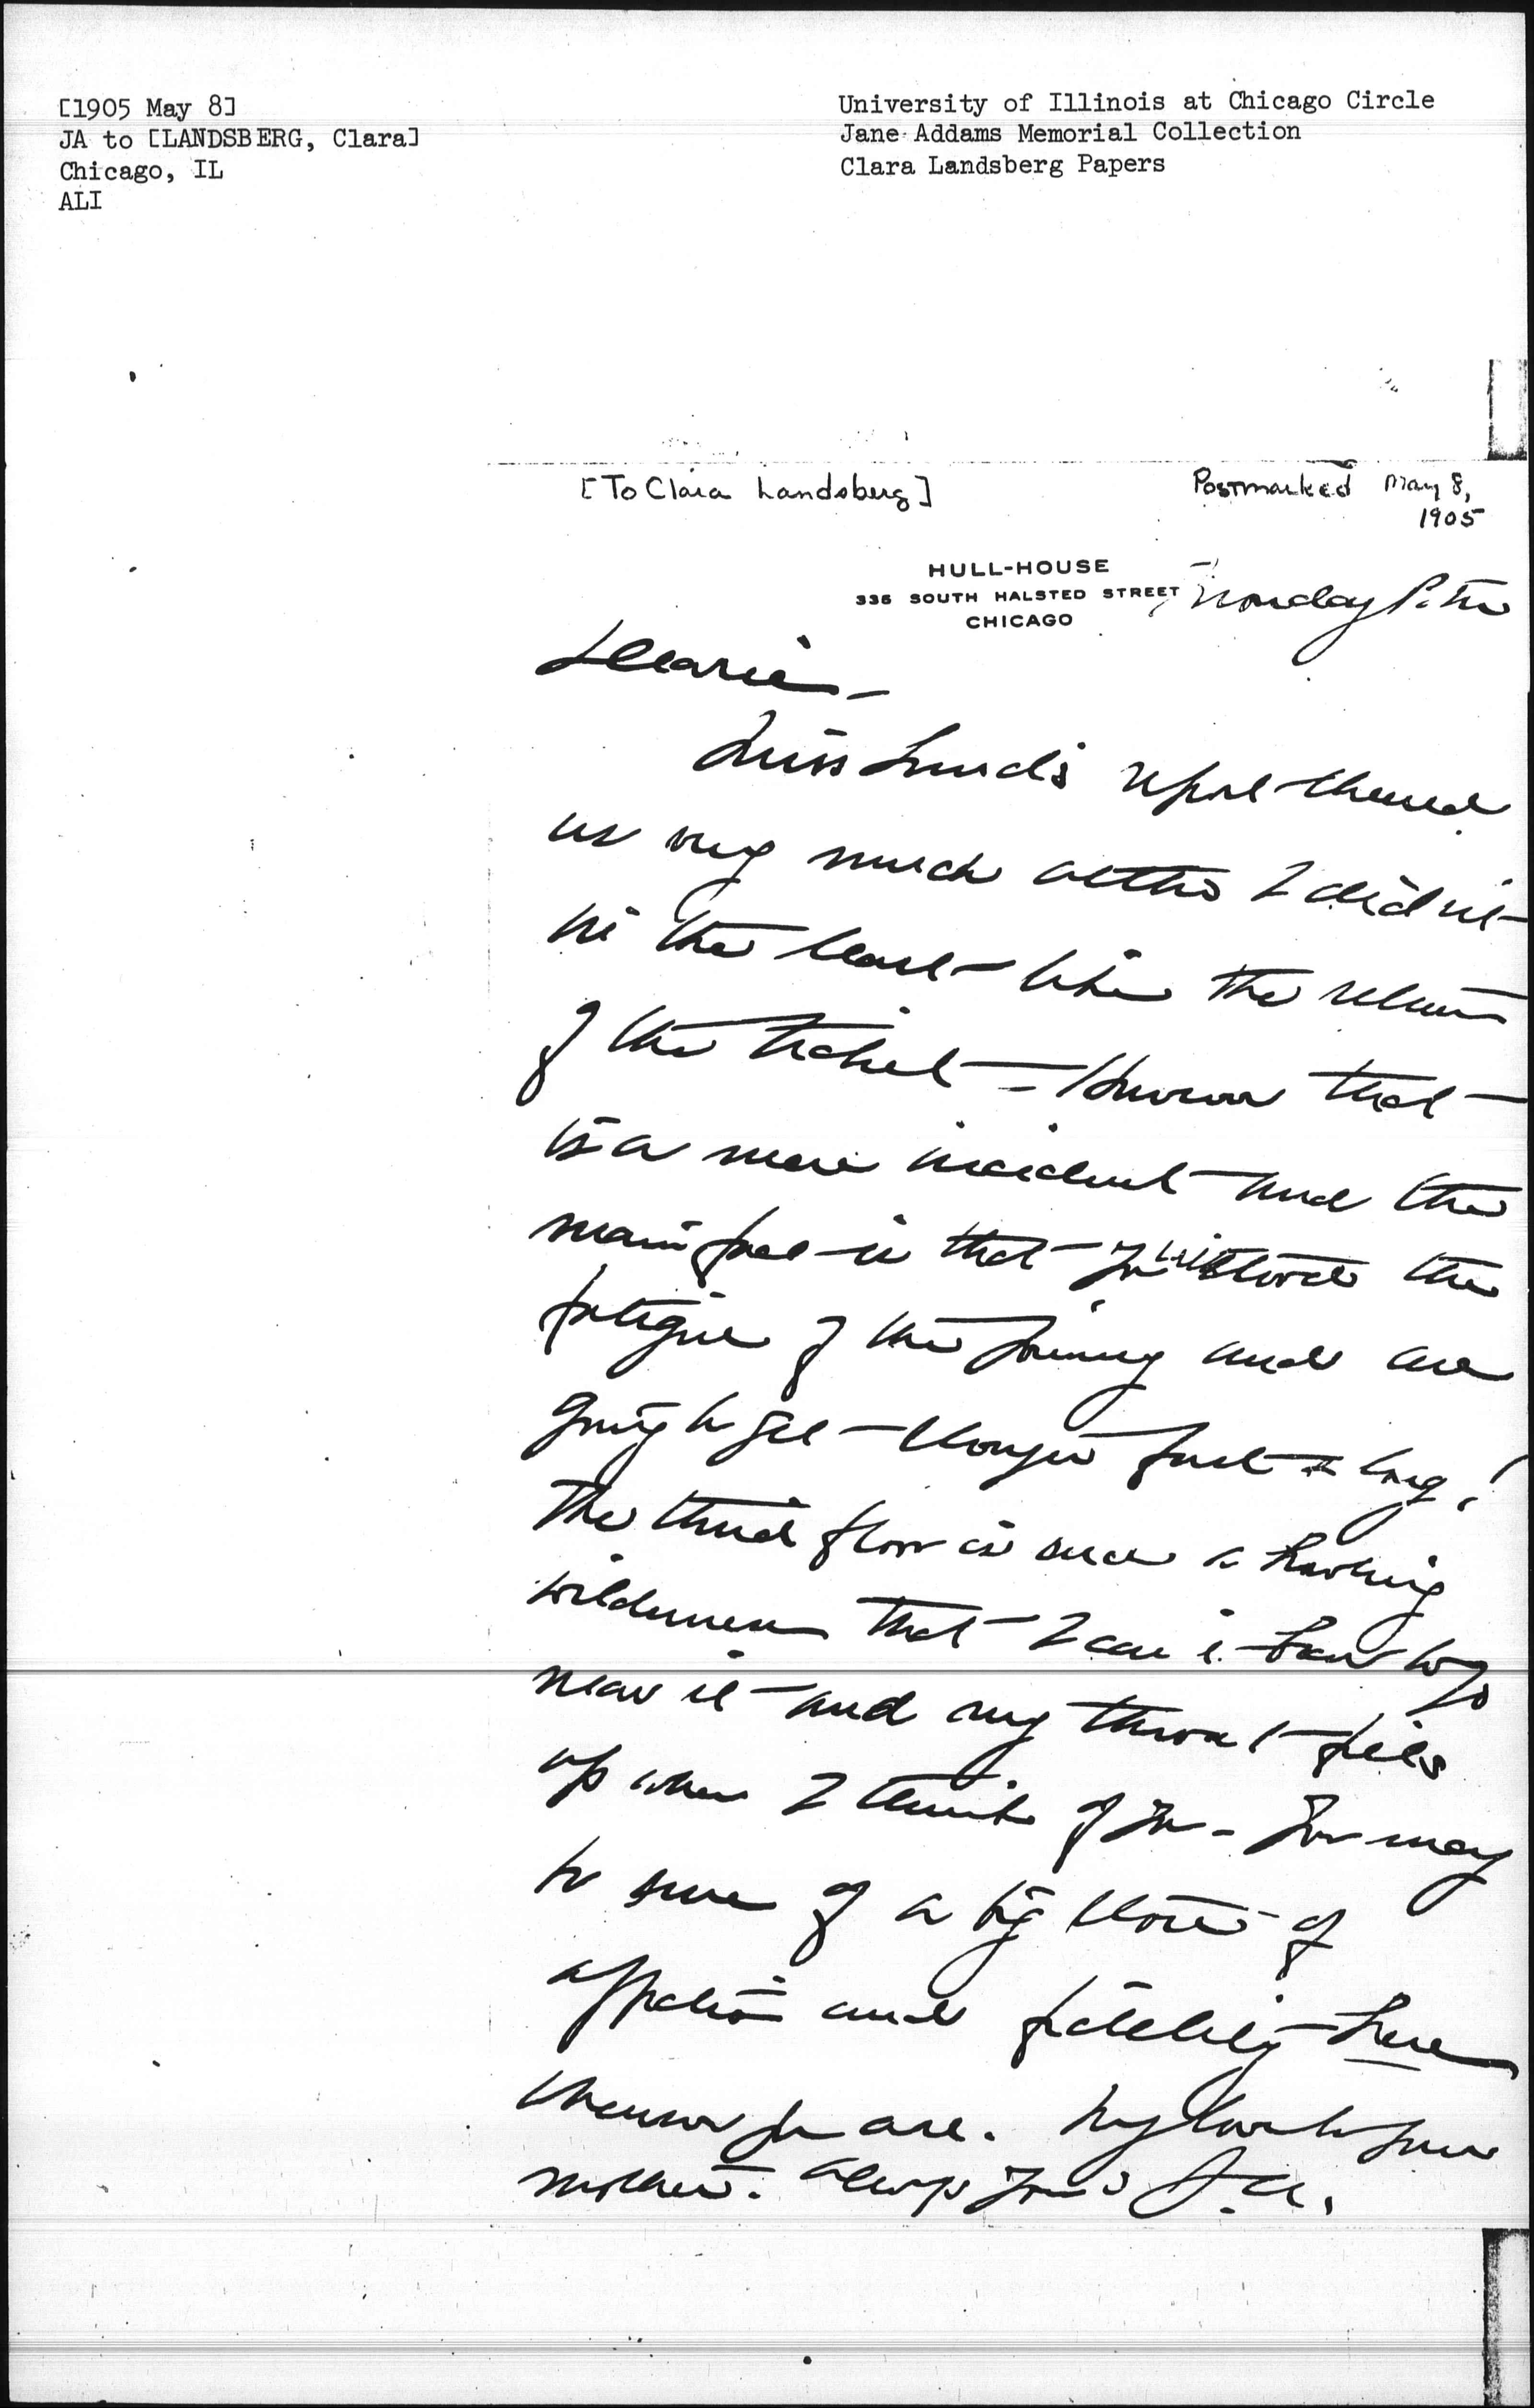 [1905 May 8]
JA to [LANDSBERG, Clara]
Chicago, IL
ALI
University of Illinois at Chicago Circle
Jane Addams Memorial Collection
Clara Landsberg Papers
[To Clara Landsberg]
Postmarked May 8,
1905
HULL-HOUSE
335 SOUTH HALSTED STREET
CHICAGO
Monday P.M
Dearie –
Miss report cheered
us very much altho I did not
in the least like the return
of the ticket – However that
is a mere incident and the
main fact is that you withstood the
fatigue of the journey and are
going to get stronger right along!
The third floor is such a howling
wilderness that I can't bear to go
near it and my throat fills
up when I think of you – You may
be sure of a big store of
affection and fidelity here
whenever you are. My love to your
mother. Always yours J.A.